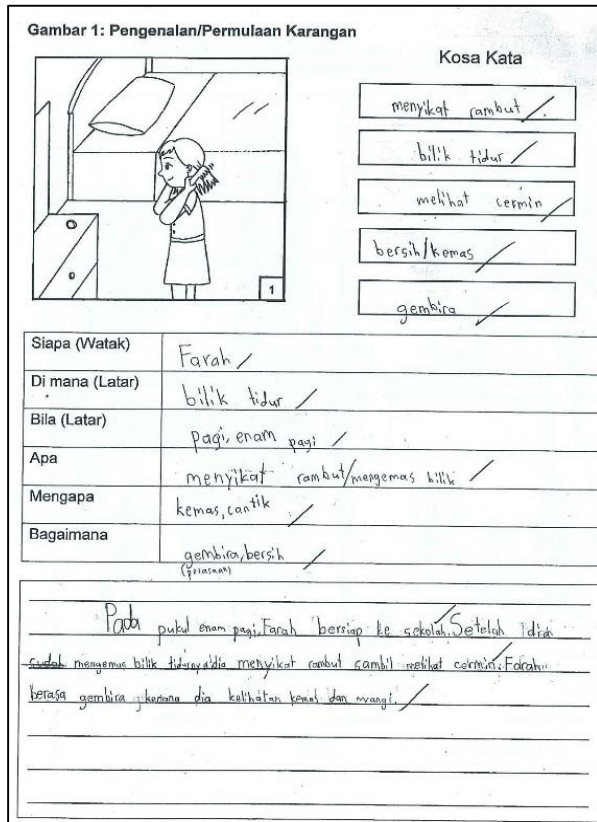 Gambar 1: Pengenalan/Permulaan Karangan
Kosa Kata
menyikat rambut
bilik tidur
melihat cermin
bersih/kemas
gembira
1
Siapa (Watak) Farah
Di mana (Latar) bilik tidur
Bila (Latar) pagi, enam pagi
Apa menyikat rambut/mengemas bilik
Mengapa kemas, cantik
Bagaimana gembira, bersih
(perasaan)
Pada pukul enam pagi, Farah bersiap ke sekolah. Setelah dia
sudah mengemas bilik tidurnya dia menyikat rambut sambil melihat cermin. Farah
berasa gembira kerana dia kelihatan kemas dan wangi.